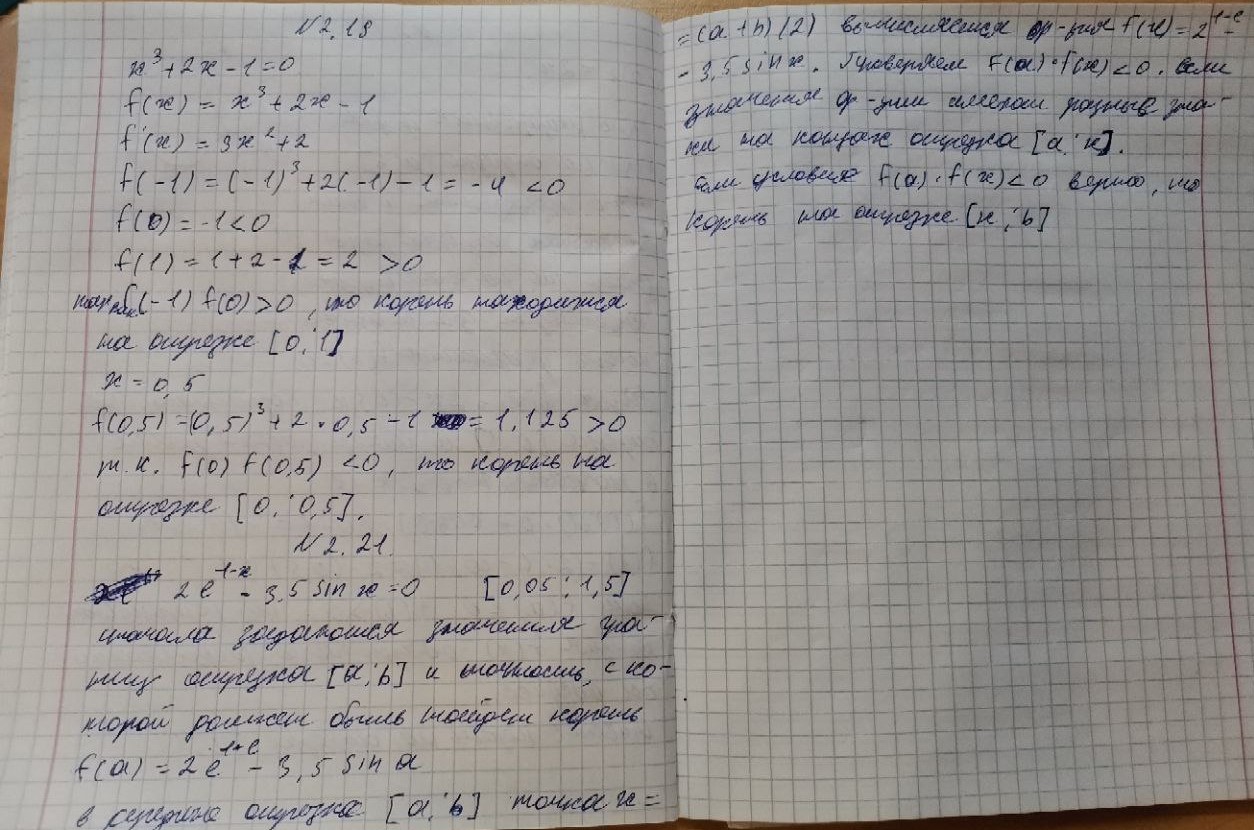 N2.19
x³+2x-1=0
f(x) = x³+2x-1
f'(x) = 3x²+2
f(-1) = (-1)³+2(-1)-1 = -4 <0
f(0) = -1<0
f(1) = 1+2-1 = 2 >0
так как f(-1) f(0)>0, то корень находится
на отрезке [0;1]
x = 0,5
f(0,5) =(0,5)³+2·0,5-1 = 1,125 >0
т.к. f(0) f(0,5) <0, то корень на
отрезке [0;0,5].
N2.21.
2e^1-x - 3,5 sin x =0 [0,05;1,5]
сначала задаются значения гра-
ниц отрезка [a;b] и точность, с ко-
торой должен быть найден корень
f(a) = 2e^1-e - 3,5 sin a
в середине отрезка [a;b] точка x =
= (a+b)(2) вычисляется ф-ция f(x) = 2^1-e -
- 3,5 sin x. Проверяем f(a)·f(x)<0. если
значения ф-ции имеют разные зна-
ки на концах отрезка [a;x].
если условия f(a)·f(x)<0 верно, то
корень на отрезке [x;b]